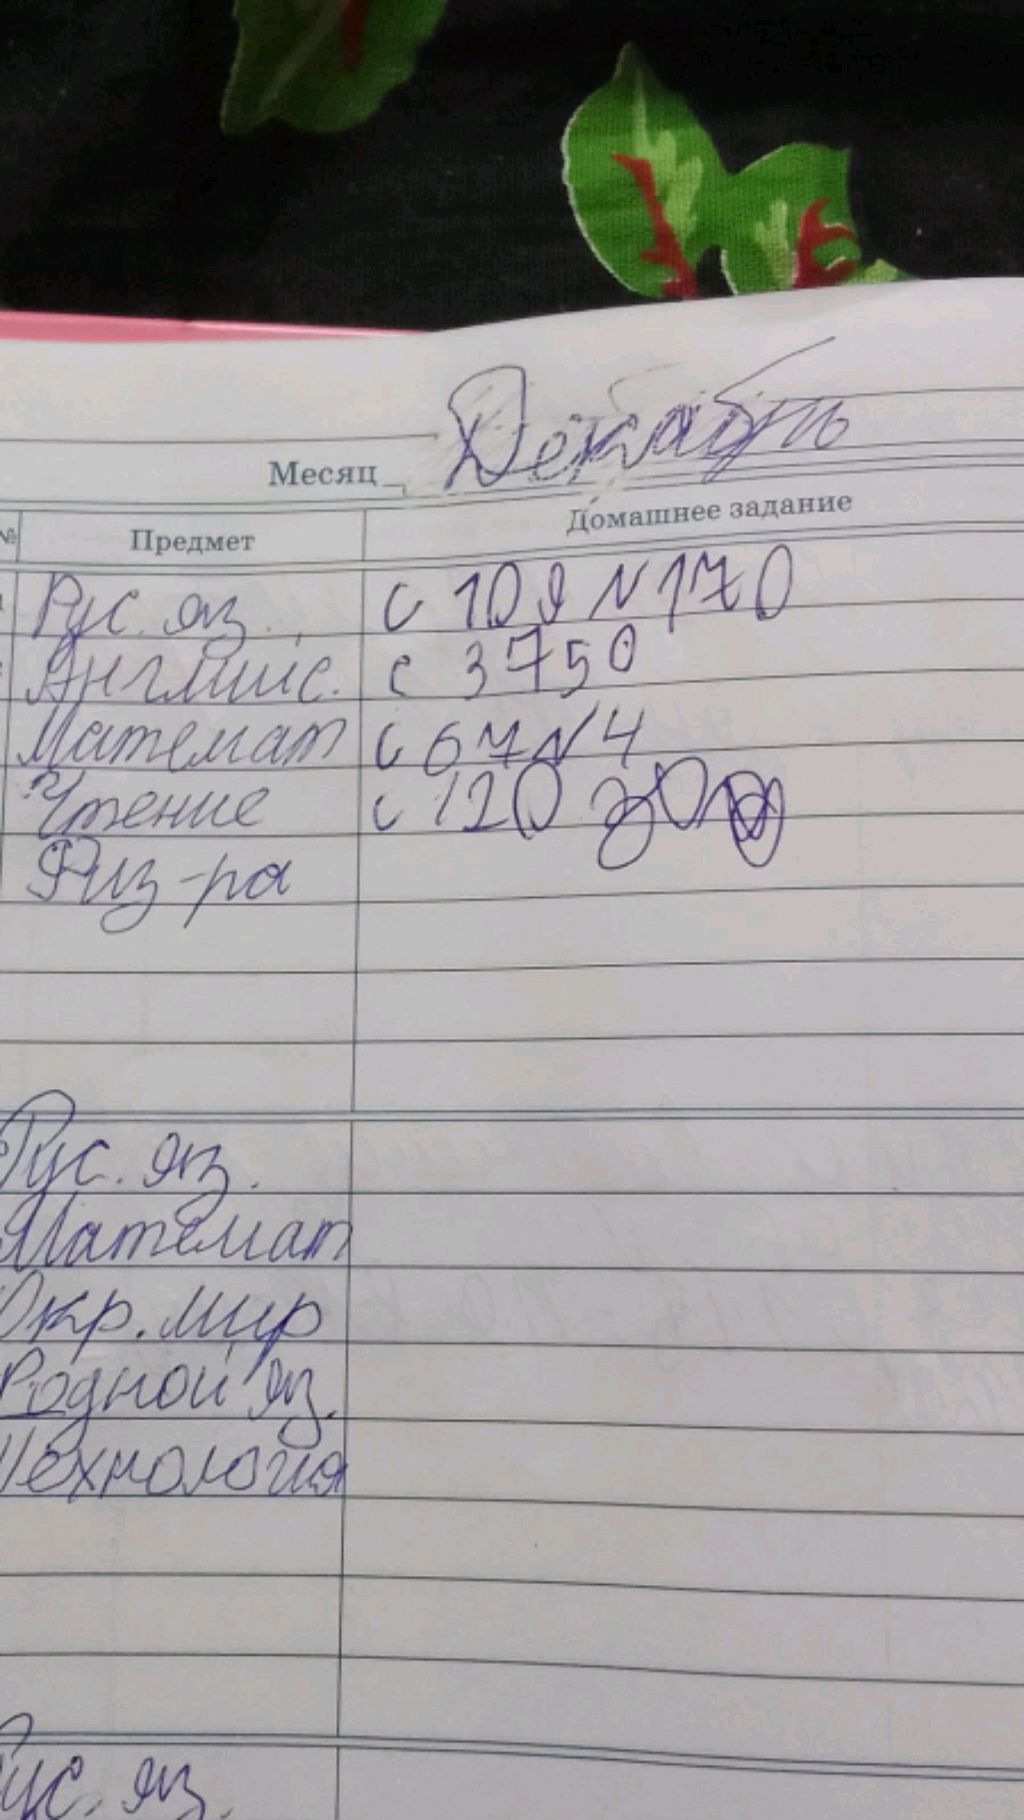 Месяц Декабрь
№ Предмет Домашнее задание
Рус. яз. с 109 N 170
Английс. с 3750
Математ с 67 N 4
Чтение с 120
Физ-ра
Рус. яз.
Математ
Окр. мир
Родной яз.
Технология
Рус. яз.